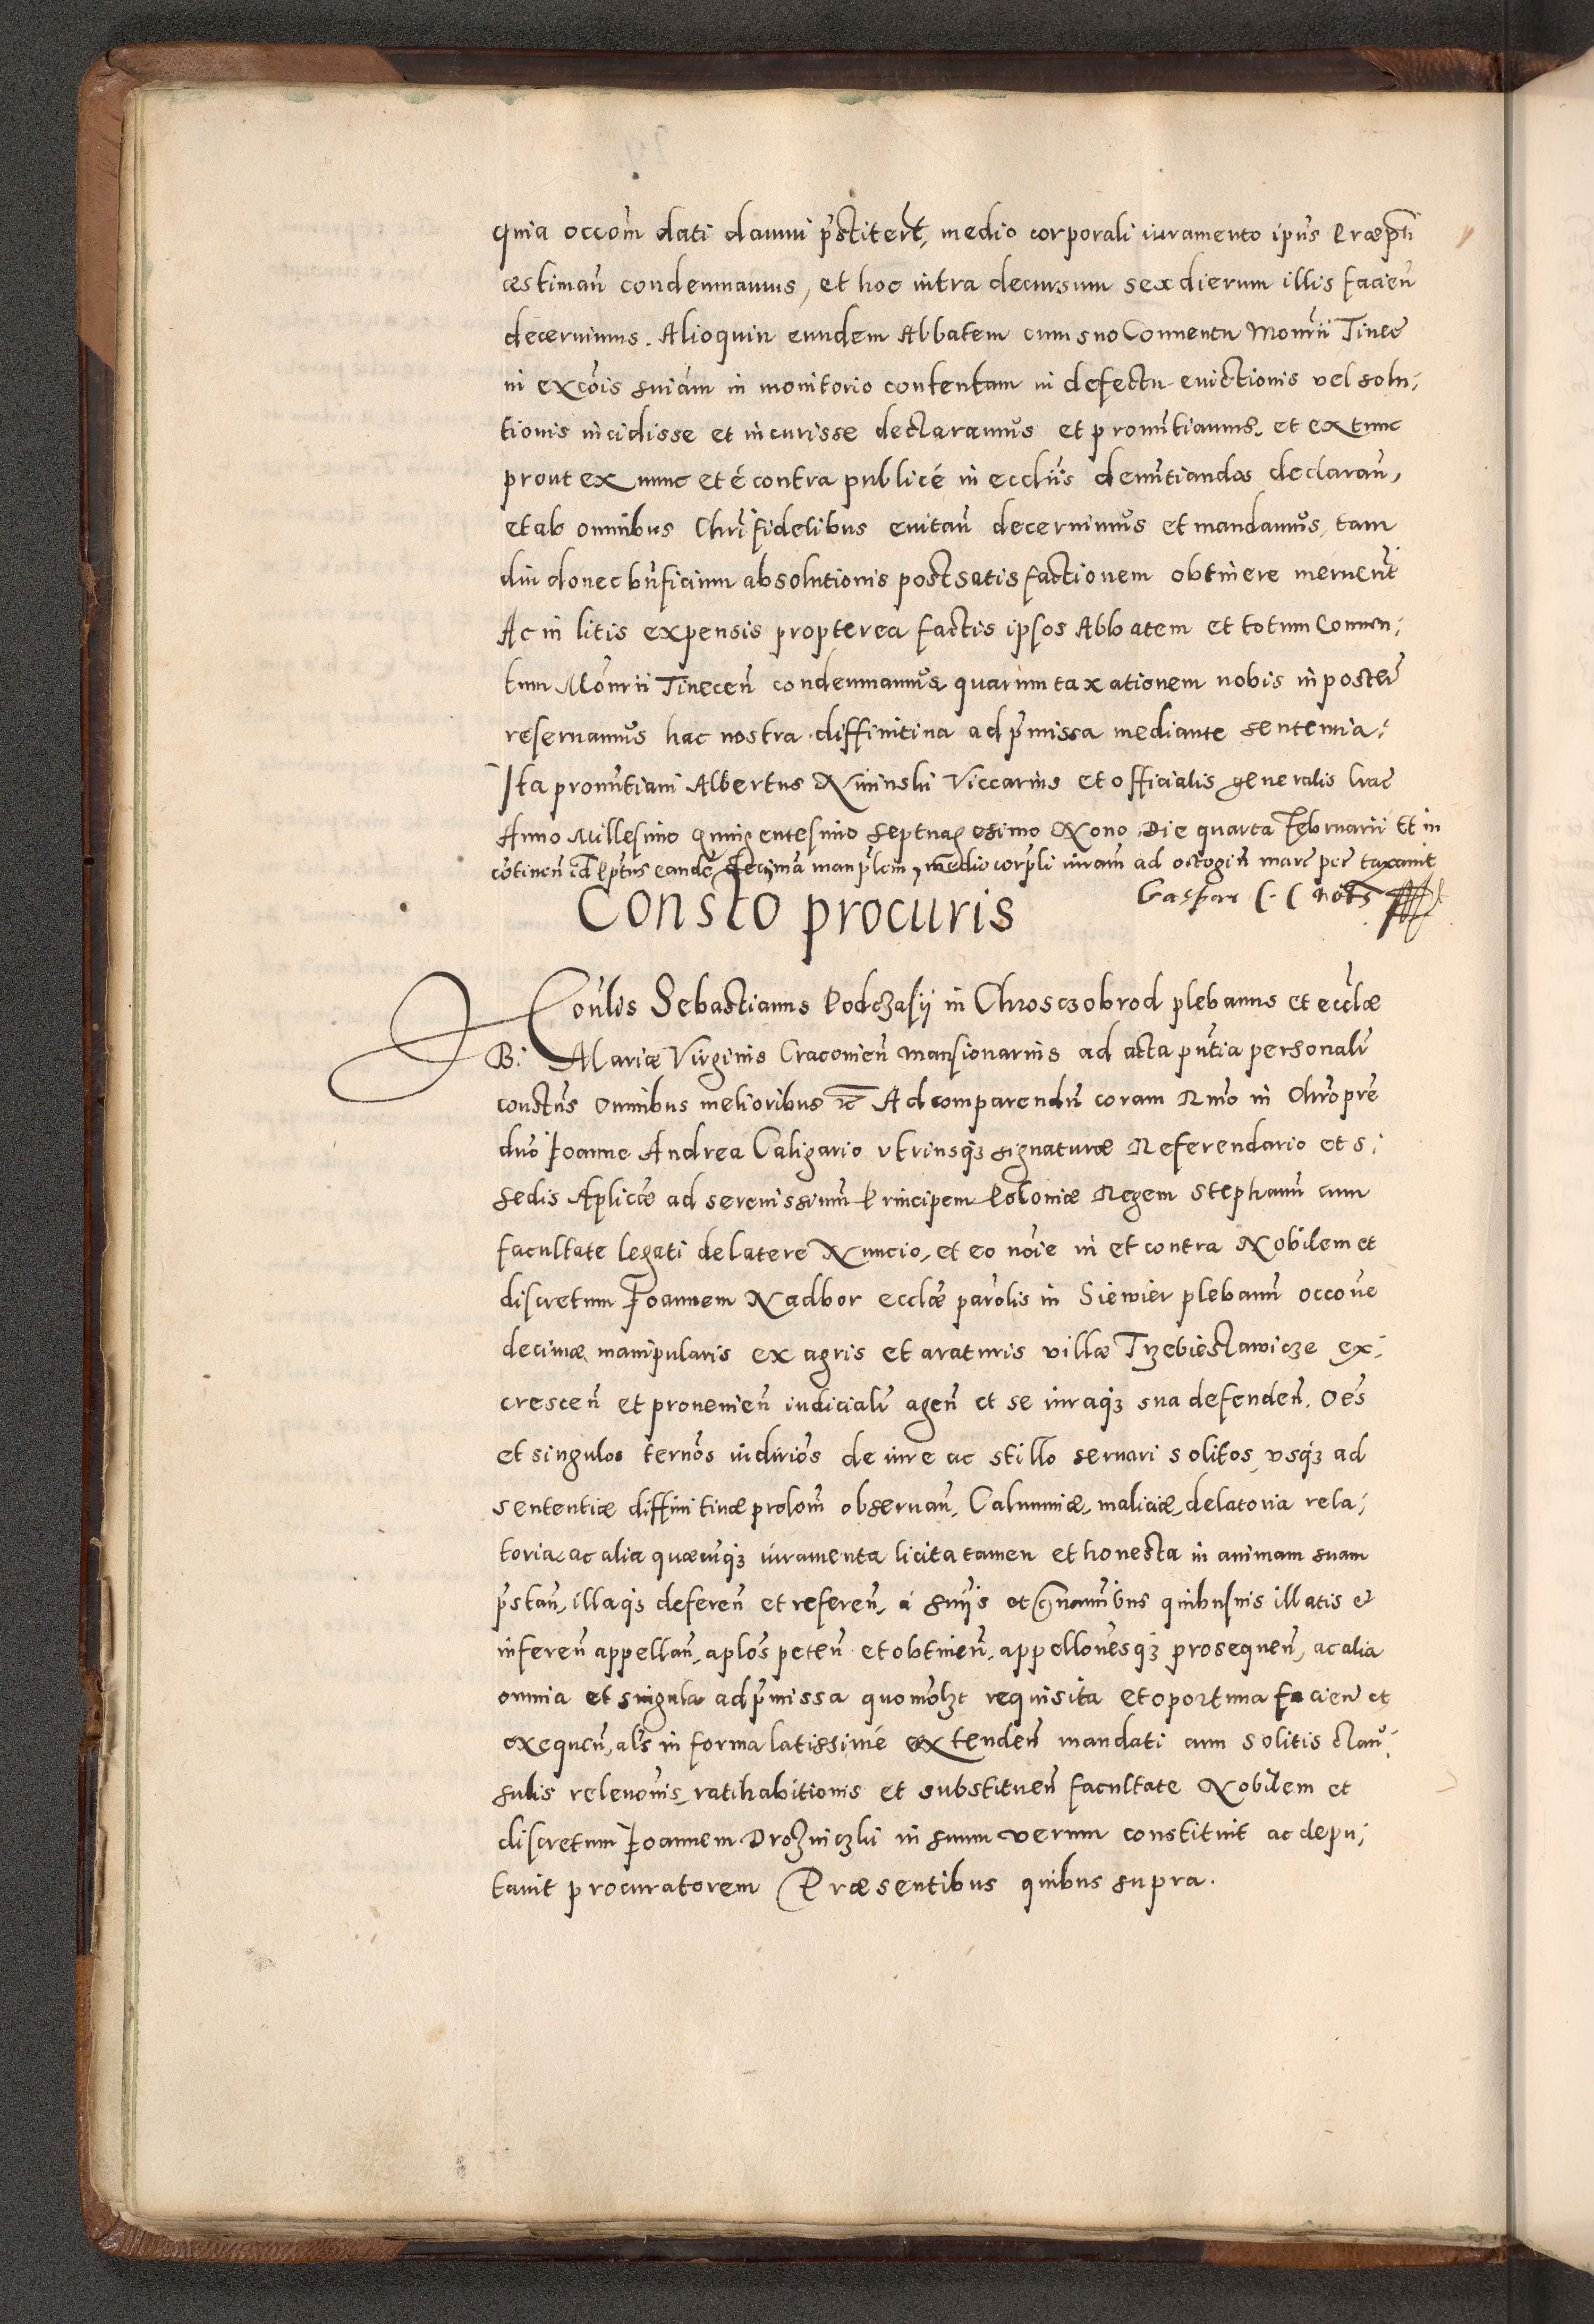 quia occom̃ dati damni p̃stiterũt, medio corporali iuramento ipĩus Præpti
æstiman̄ condemnamus, et hoc intra decursum sex dierum illis facien̄
decernimus. Alioquin eundem Abbatem cum suo Conuentu Monr̃ii Tinec̃
in excõis sniam̃ in monitorio contentam in defectu euictionis vel solu;
tionis incidisse et incurisse declaramus et pronũtiamus, et ex tunc
prout ex nunc et é contra publicé in eccliis denũtiandos declaran̄,
et ab omnibus Chr̃ifidelibus euitan̄ decernimus et mandamus, tam
diu donec bñficium absolutionis post satisfactionem obtinere merueñt
Ac in litis expensis propterea factis ipsos Abbatem et totum Conuen;
tum Monr̃ii Tinecen̄ condemnamus quarum taxationem nobis in poster̃
reseruamus hac nostra diffinitiua ad p̃missa mediante sententia:
Ita pronũtiaui Albertus Nininski Viccarius et officialis generalis Crac̃
Anno Millesimo Quingentesimo Septuagesimo Nono Die quarta Februarii Et in
cõtinen̄ id Eptus eandẽ decimã manp̃lem, medio corpĩli iuram̃ ad octogin̄ marc̃ pec̃ taxauit
Gaspar C. C nots
Consto procuris
Honĩlis Sebastianus Podczasÿ in Chrosczobrod plebanus et ecclæ
B: Mariæ Virginis Cracouien̄ mansionarius ad acta pñtia personalr̃
constũs omnibus melioribus ꝛc̃ Ad comparendũ coram Rmõ in Chr̃o prẽ
dnõ Joanne Andrea Caligario vtriusqꝫ signaturæ Referendario et S:
Sedis Aplicæ ad serenissimũ Principem Poloniæ Regem Stephanũ cum
facultate legati de latere Nuncio, et eo noĩe in et contra Nobilem et
discretum Joannem Nadbor ecclæ parolis in Siewier plebanũ occoñe
decimæ manipularis ex agris et araturis villæ Trzebieslawicze ex;
crescen̄ et prouenien̄ iudicialr̃ agen̄ et se iuraqꝫ sua defenden̄. Oẽs
et singulos terños iudiriõs de iure ac stillo seruari solitos, vsqꝫ ad
sententiæ diffinitiuæ prolom̃ obseruan̄, Calumniæ, maliciæ, delatoria rela;
toria, ac alia quæcuqꝫ iuramenta licita tamen et honesta in animam suam
p̃stan̄, illaqꝫ deferen̄ et referen̄, á sniĩs et grauamĩbus quibusuis illatis et
inferen̄ appellan̄, aplos̃ peten̄ et obtinen̄, appelloñesqꝫ prosequen̄, ac alia
omnia et singula ad p̃missa quomolꝫt requisita et oportuna facien̄ et
exequen̄, als̃ in forma latissimé extenden̄ mandati cum solitis clau;
sulis releuonis, ratihabitionis et substituen̄ facultate Nobilem et
discretum Joannem Drozniczki in suum verum constituit ac depu;
tauit procuratorem Præsentibus quibus supra.